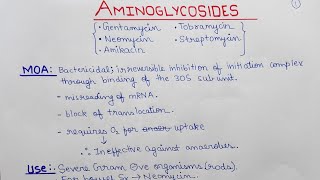 AMINOGLYCOSIDES
①
• Gentamycin • Tobramycin
• Neomycin • Streptomycin
• Amikacin
MOA: Bactericidal; irreversible inhibition of initiation complex
through binding of the 30S sub unit.
- misreading of mRNA.
- block of translocation.
- requires O₂ for uptake
∴ Ineffective against anaerobes.
Use:. Severe Gram ⊖ve organisms (rods).
For bowel Sx → Neomycin.